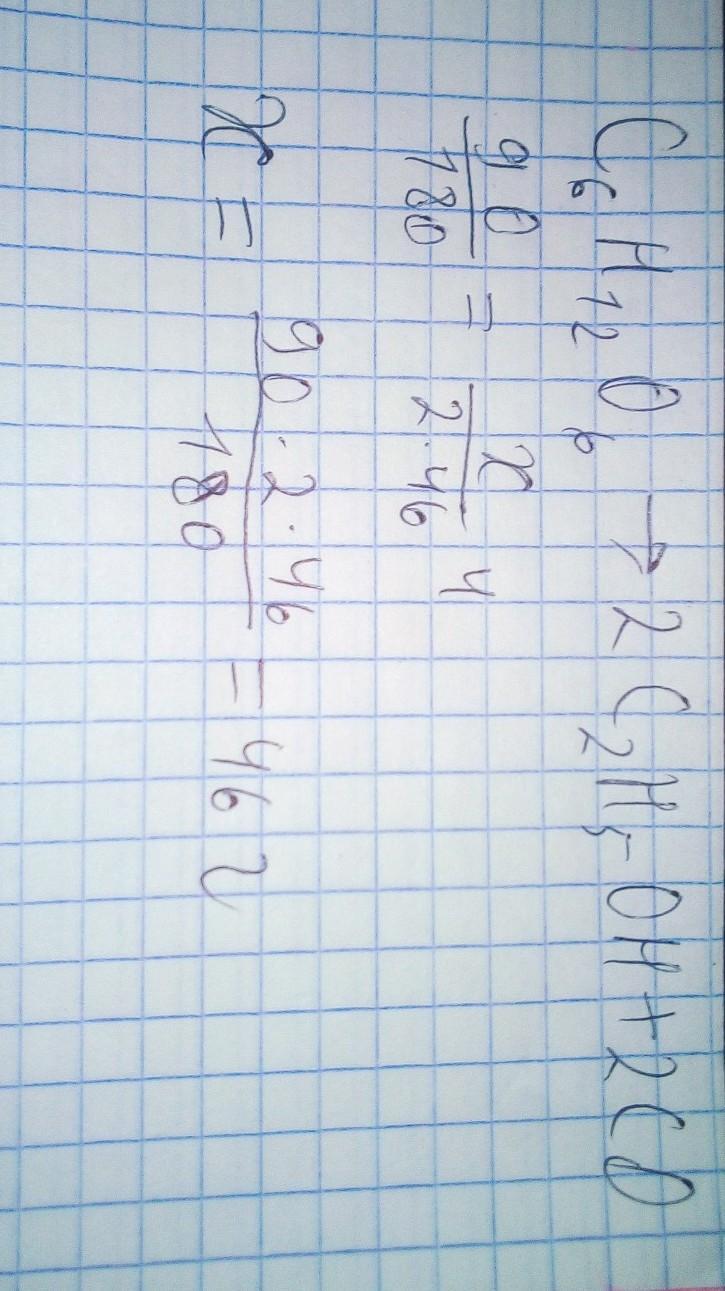 C₆H₁₂O₆ → 2C₂H₅OH + 2CO
90/180 = x/2·46 ч
x = 90·2·46/180 = 46 г